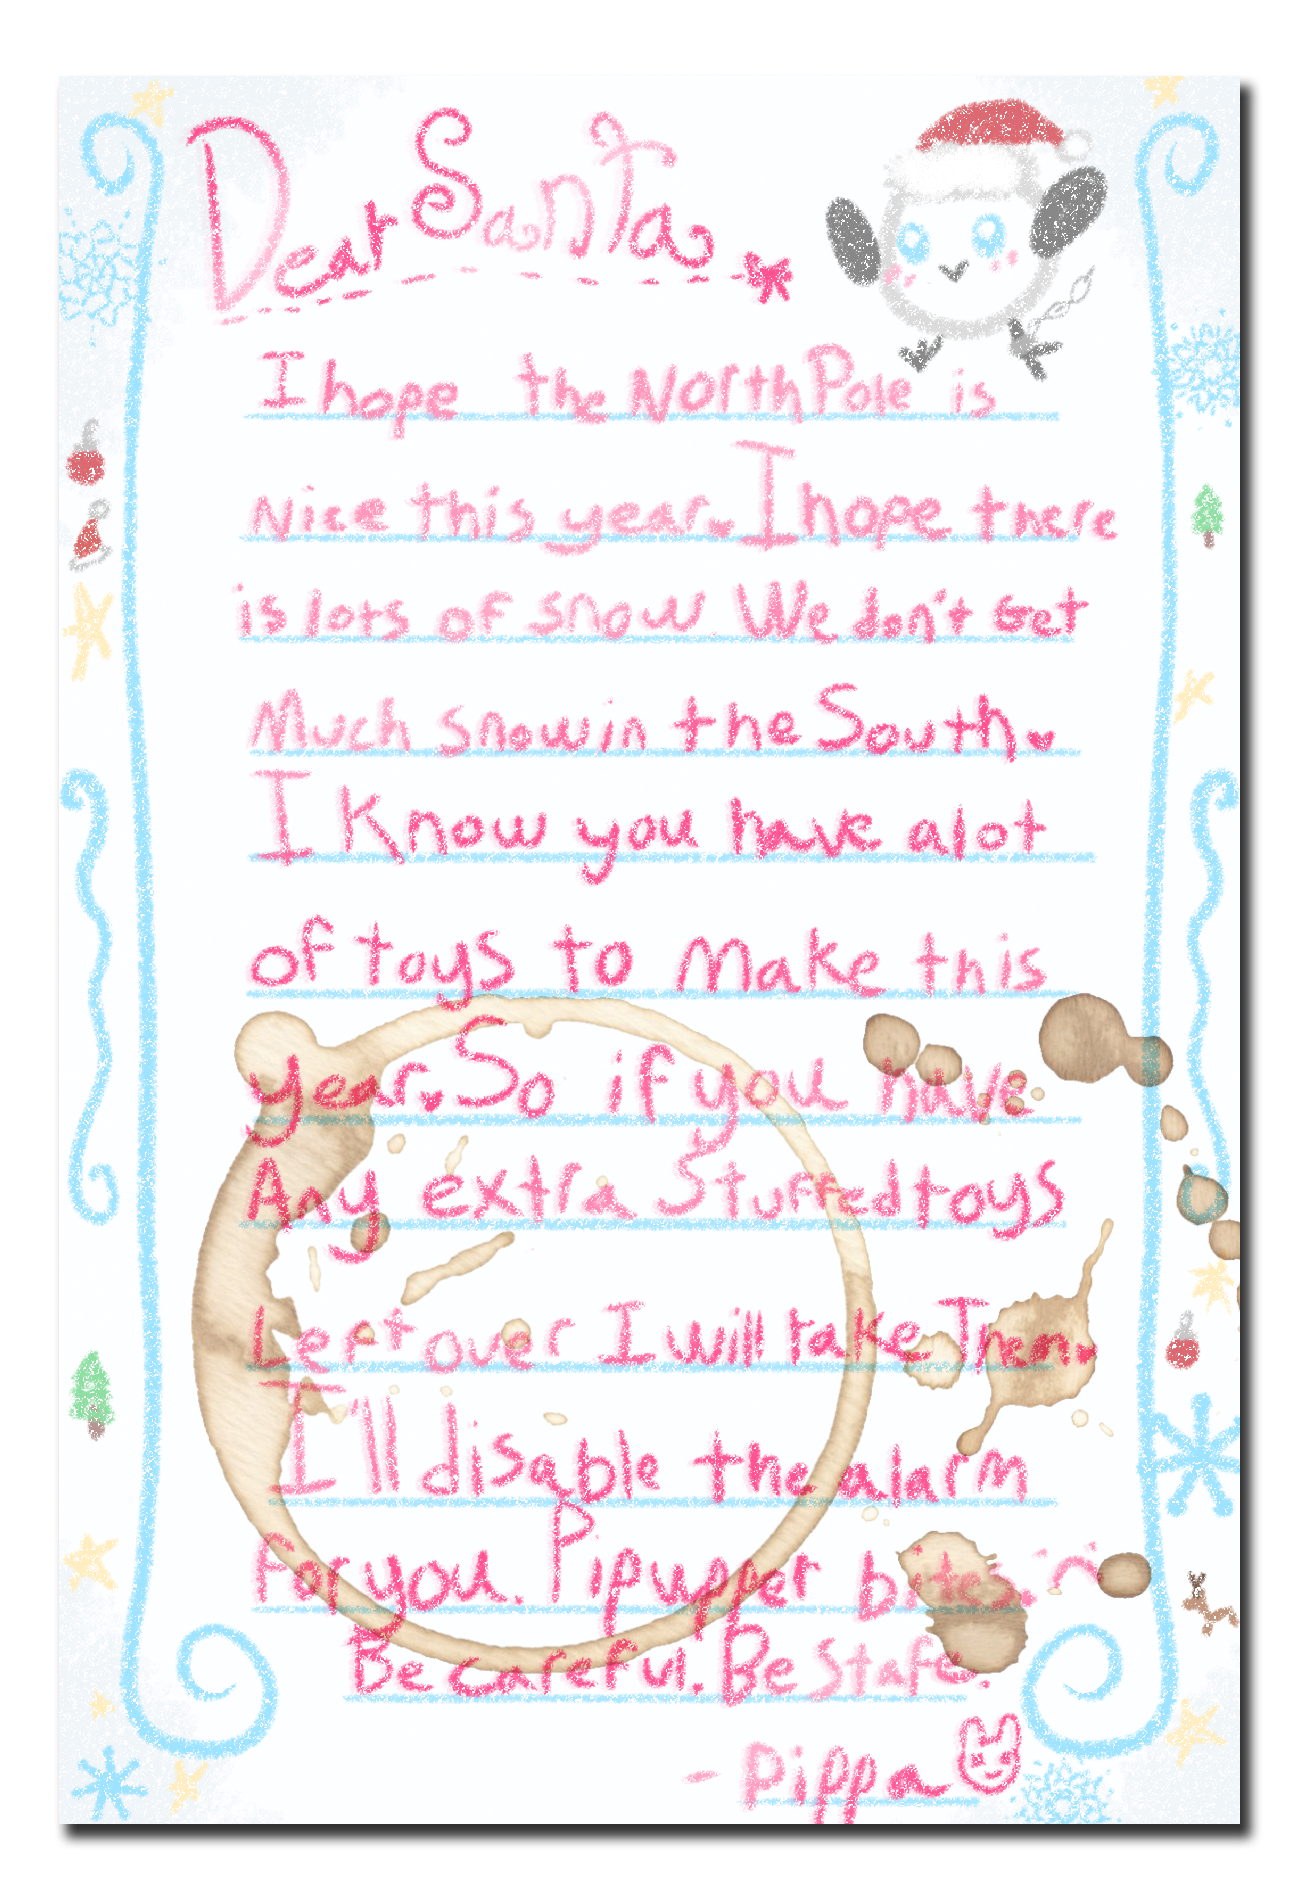 Dear Santa
I hope the North Pole is
Nice this year. I hope there
is lots of snow We don't Get
Much snow in the South.
I Know you have alot
of toys to Make this
year. So if you have
Any extra Stuffed toys
Leftover I will take Them.
I'll disable the alarm
For you. Pipupper bites.
Be careful. Be Stafe.
- Pippa